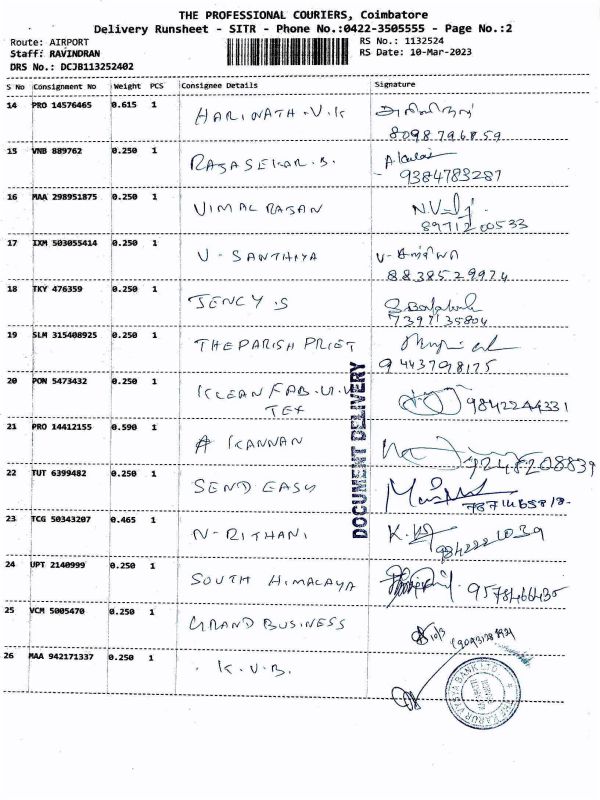 THE PROFESSIONAL COURIERS, Coimbatore
Delivery Runsheet - SITR - Phone No.:0422-3505555 - Page No.:2
Route: AIRPORT RS No.: 1132524
Staff: RAVINDRAN RS Date: 10-Mar-2023
DRS No.: DCJB113252402
S No Consignment No Weight PCS Consignee Details Signature
14 PRO 14576465 0.615 1 HARINATH.V.K
8098796859
15 VNB 889762 0.250 1 RAJASEKAR.S.
9384783287
16 MAA 298951875 0.250 1 VIMAL RAJAN
8971200533
17 IXM 503055414 0.250 1 V-SANTHIYA
8838529974
18 TKY 476359 0.250 1 JENCY.S
7397135804
19 SLM 315408925 0.250 1 THE PARISH PRIET
9443798175
20 PON 5473432 0.250 1 KLEAN FAB.U.V
TEX
9842244331
21 PRO 14412155 0.590 1 A KANNAN
7248208839
22 TUT 6399482 0.250 1 SEND EASY
23 TCG 50343207 0.465 1 N-RITHANI
9842221039
24 UPT 2140999 0.250 1 SOUTH HIMALAYA
9578466435
25 VCM 5005470 0.250 1 GRAND BUSINESS
10/3
26 MAA 942171337 0.250 1 K.V.B.
DOCUMENT DELIVERY
THE KARUR VYSYA BANK LTD.